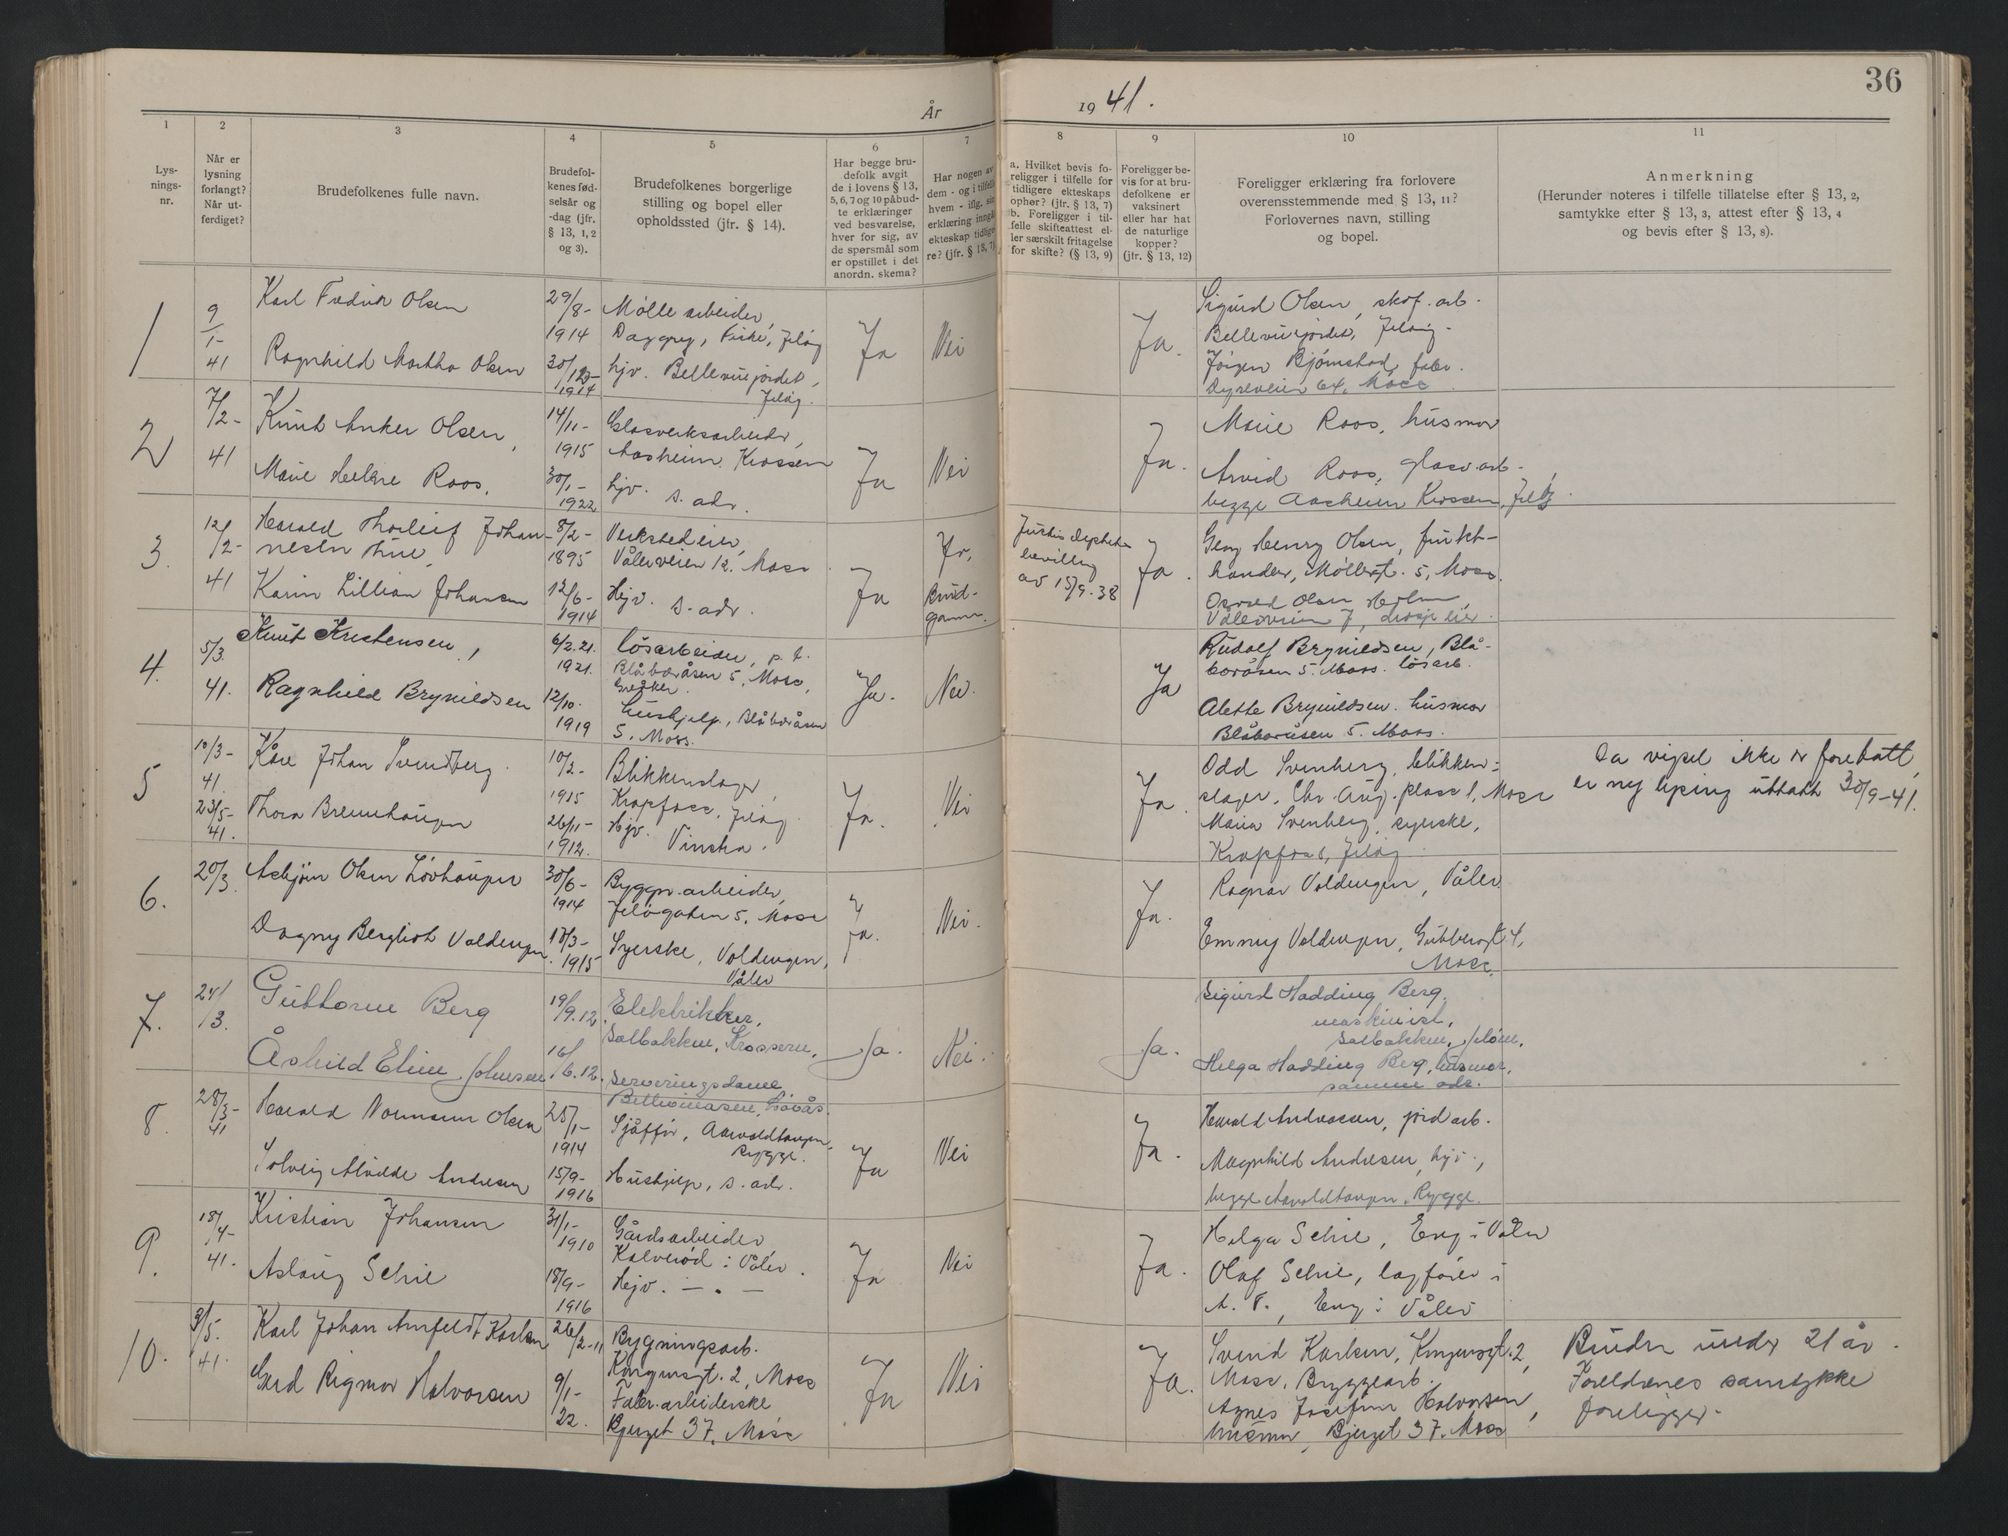 36
År 1941.
1
2
3
4
5
6
7
8
9
10
11
Lys-
nings-
nr.
Når er
lysning
forlangt?
Når ut-
ferdiget?
Brudefolkenes fulle navn.
Brudefol-
kenes fød-
selsår og
-dag (jfr.
§ 13, 1, 2
og 3).
Brudefolkenes borgerlige
stilling og bopel eller
opholdssted (jfr. § 14).
Har begge bru-
defolk avgit
de i lovens § 13,
5, 6, 7 og 10 påbud-
te erklæringer
ved besvarelse,
hver for sig, av
de spørsmål som
er opstillet i det
anordn. skema?
Har nogen av
dem - og i tilfelle
hvem - iflg. sin
erklæring inngått
ekteskap tidlige-
re? (jfr. § 13, 7)
a. Hvilket bevis fo-
religger i tilfelle for
tidligere ekteskaps
ophør? (jfr. § 13, 7)
b. Foreligger i til-
felle skifteattest el-
ler særskilt fritagelse
for skifte? (§ 13, 9)
Foreligger be-
vis for at bru-
defolkene er
vaksinert
eller har hat
de naturlige
kopper?
(jfr. § 13, 12)
Foreligger erklæring fra forlovere
overensstemmende med § 13, 11?
Forlovernes navn, stilling
og bopel.
Anmerkning
(Herunder noteres i tilfelle tillatelse efter § 13, 2,
samtykke efter § 13, 3, attest efter § 13, 4
og bevis efter § 13, 8).
1
9/1-
41
Karl Fredrik Olsen
Ragnhild Martha Olsen
29/8-
1914
30/12-
1914
Mølle arbeider,
Daggry, Fiske, Jeløy
hjv. Bellevuejordet,
Jeløy.
Ja
Nei
Ja.
Sigurd Olsen, skof. arb.
Bellevuejordet, Jeløy.
Jörgen Bjørnstad, fabr.
Dyreveien 64, Moss
2
7/2-
41
Knut Anker Olsen,
Marie Helene Roos.
14/11-
1915
30/1-
1922
Glassverksarbeider,
Aasheim, Krossen
hjv. s. adr.
Ja
Nei
Ja.
Marie Roos, husmor
Arvid Roos, glassv. arb.
begge Aasheim Krossen, Jeløy.
3.
12/2-
41
Harald Thorleif Johan-
nesen Lie,
Karin Lillian Johansen
8/2-
1895
12/6-
1914
Verkstedeier,
Vålerveien 12. Moss
Hjv. s. adr.
Ja
Ja,
Brud-
gommen.
Justisdeptets
bevilling
av 15/9-38
Ja.
Georg Henry Olsen, frukt-
handler, Møllergt. 5, Moss.
Osvald Olsen Holm,
Vålerveien 7, drosjeeier
4.
5/3.
41.
Knut Kristensen,
Ragnhild Brynildsen
6/2.21.
1921.
12/10.
1919
Løsarbeider, p.t.
Blåbæråsen 5, Moss,
Greåker.
Hushjelp, Blåbæråsen
5, Moss.
Ja.
Nei.
Ja
Rudolf Brynildsen, Blå-
bæråsen 5. Moss. løsarb.
Alette Brynildsen. husmor
Blåbæråsen 5. Moss.
5
10/3-
41.
23/5-
41.
Kåre Johan Svendberg.
Thora Bremehaugen
10/2-
1915
26/11-
1912.
Blikkenslager,
Krapfoss, Jeløy.
Hjv. Vinstra.
Ja.
Nei
Ja.
Odd Svenberg, blikken-
slager, Chr. Aug. plass 1, Moss
Maria Svenberg, syerske,
Krapfoss, Jeløy.
Da vigsel ikke er foretatt,
er ny lysing uttatt 30/9-41.
6.
20/3.
Asbjørn Olsen Løvhaugen
Dagny Bergliot Valdengen
30/6-
1914
18/3-
1915
Byggn. arbeider,
Jeløgaten 5, Moss
Syerske, Valdengen,
Våler
Ja.
Nei.
Ja.
Ragnar Valdengen, Våler
Emmy Valdengen, Gubberogt 4,
Moss.
7.
24/3.
Guttorm Berg
Åshild Eline Johnsen
19/9.12.
16/6.12.
Elektriker,
Solbakken, Krossern,
Serveringsdame
Ja.
Nei.
Ja.
Sigurd Hadding Berg,
maskinist,
Solbakken, Jeløen.
Helga Hadding Berg, husmor,
samme adr.
8.
28/3-
41
Harald Normann Olsen
Solveig Alvilde Andresen
25/1-
1914
15/9-
1916
Sjåffør, Aarvoldtangen,
Rygge.
Hushjelp, s. adr.
Ja
Nei
Ja.
Harald Andreassen, jord arb.
Magnhild Andresen, hjv.,
begge Aarvoldtangen, Rygge.
9.
18/4-
41.
Kristian Johansen
Aslaug Schie
31/1-
1910
18/9-
1916
Gårdsarbeider
Kalverød i Våler.
Hjv. — . —
Ja
Nei
Ja.
Helga Schie, Eng i Våler
Olaf Schie, lagfører i
A. T., Eng i Våler
10.
3/5.
41.
Karl Johan Arnfeldt Karlsen
Gerd Rigmor Halvorsen
26/2-11
9/1-
22.
Bygningsarb.
Kongensgt. 2, Moss
Fabr. arbeiderske
Bjerget 37, Moss
Ja
Nei
Ja.
Svend Karlsen, Kongensgt. 2,
Moss, Bryggearb.
Agnes Josefine Halvorsen,
husmor, Bjerget 37. Moss
Bruden under 21 år.
Foreldrenes samtykke
foreligger.